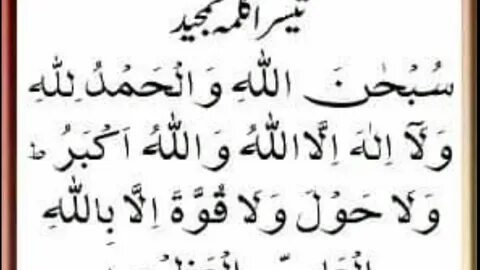 تیسرا کلمہ تمجید
سُبْحٰنَ اللهِ وَالْحَمْدُ لِلّٰهِ
وَلَآ اِلٰهَ اِلَّا اللهُ وَاللهُ اَكْبَرُ ؕ
وَلَا حَوْلَ وَلَا قُوَّةَ اِلَّا بِاللهِ